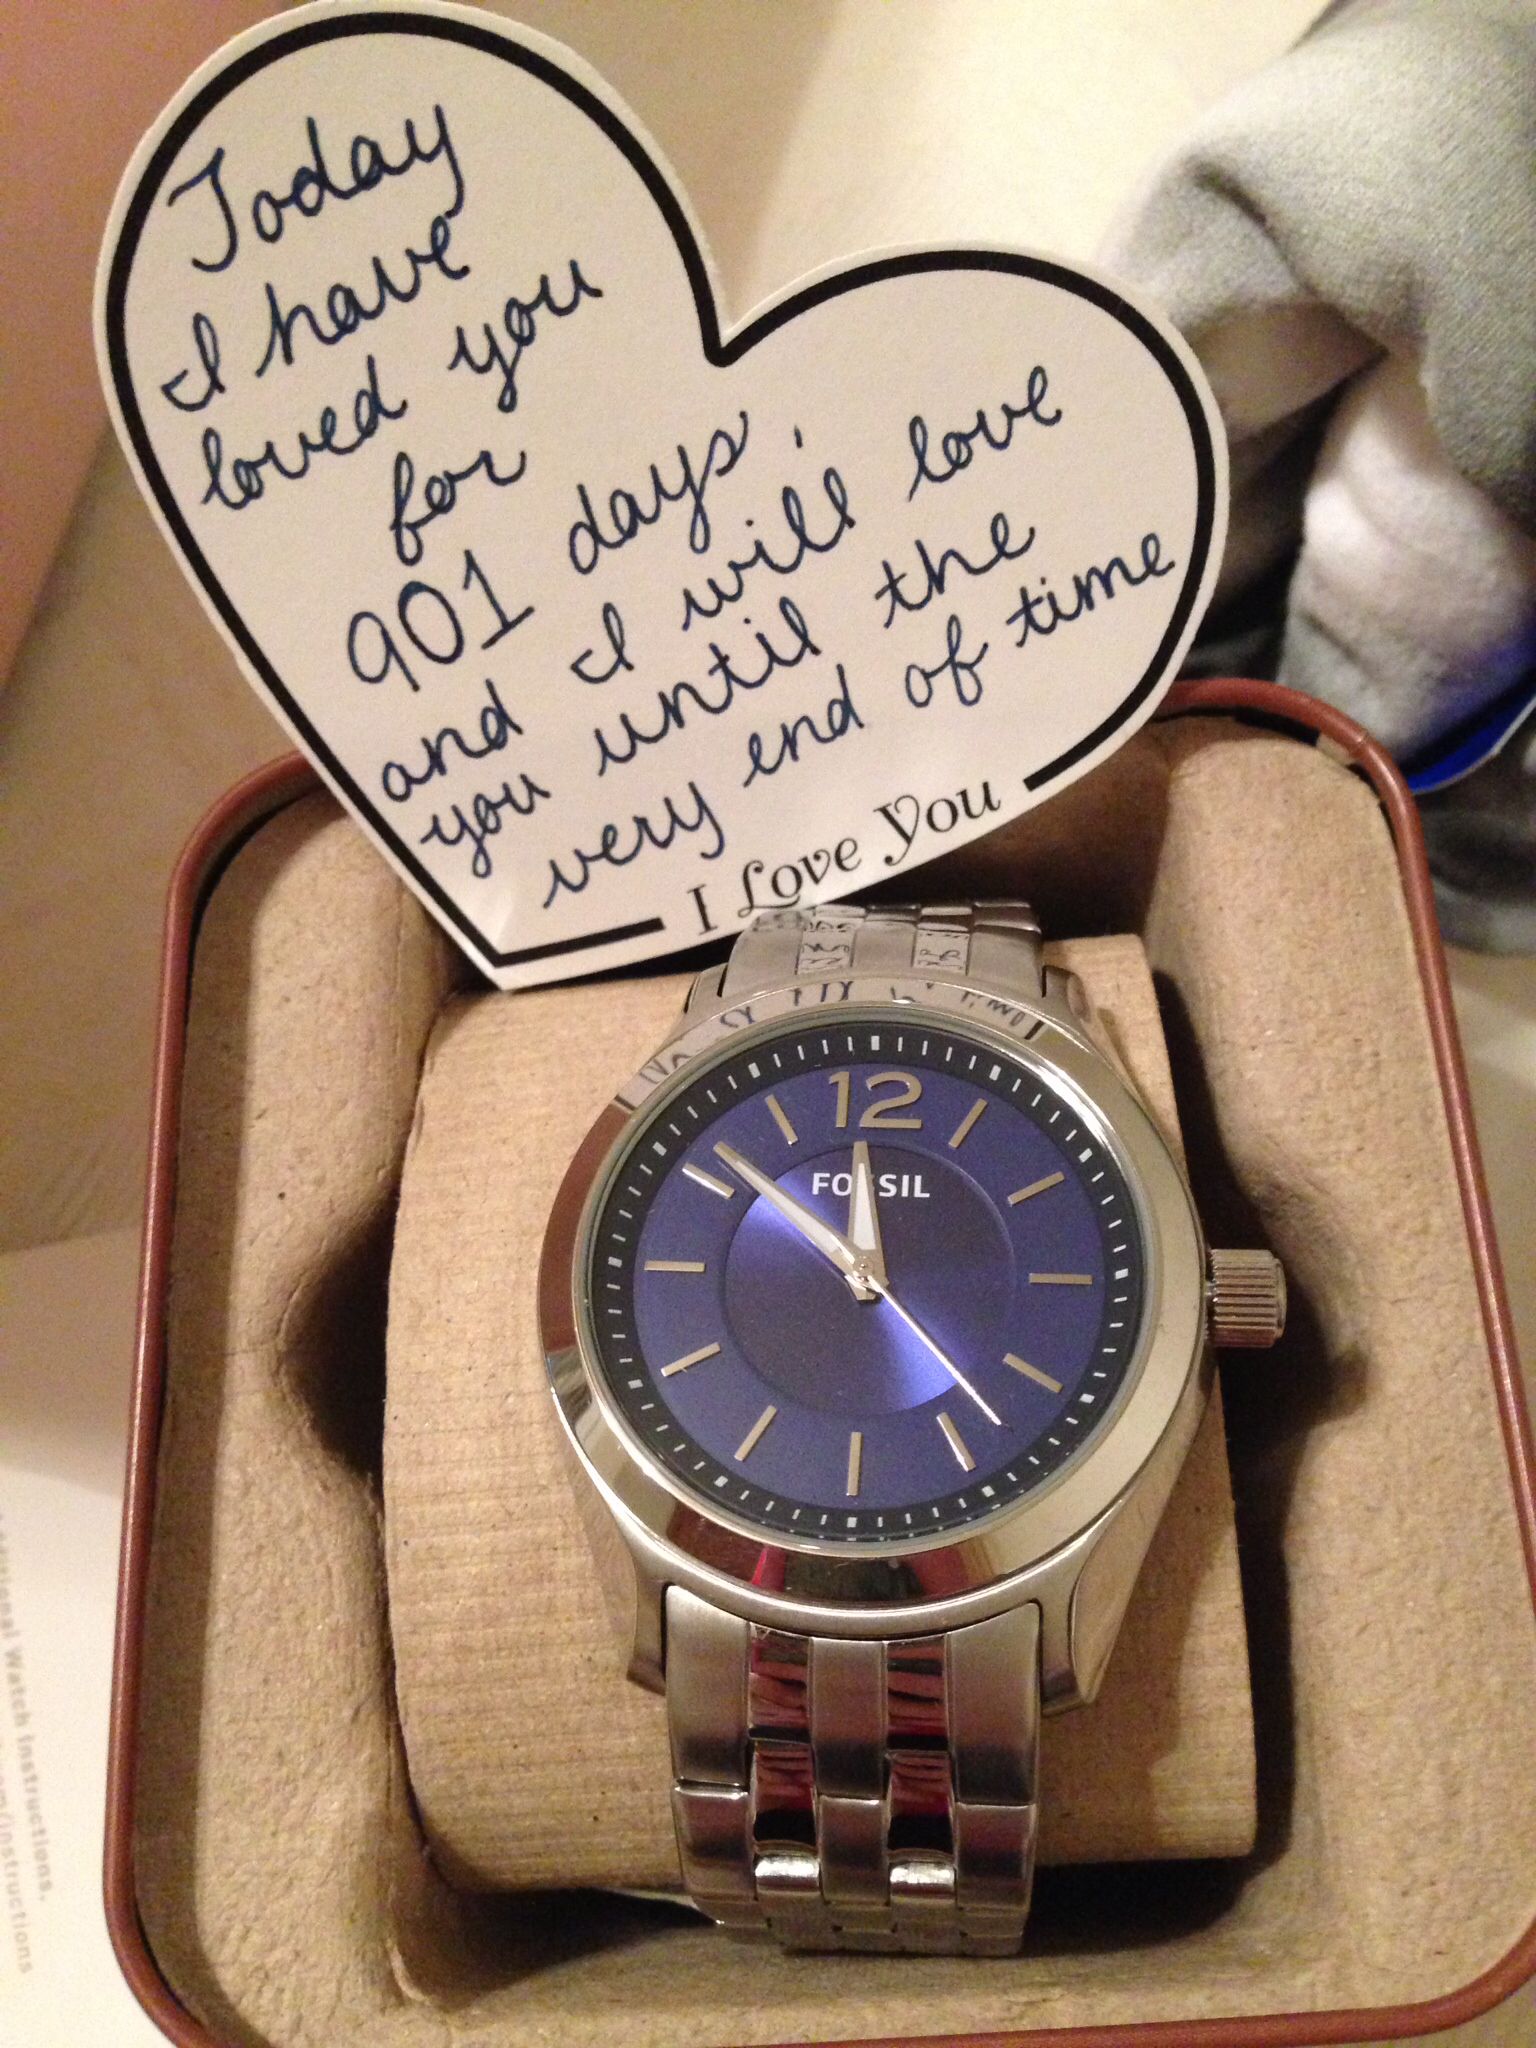 Today
I have
loved you
for
901 days,
and I will love
you until the
very end of time
I Love You
12
FOSSIL
Watch Instructions.